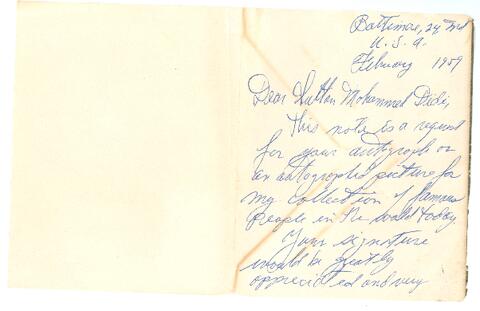 Baltimore, 24 Md
U. S. A.
February 1959
Dear Sultan Mohammed Didi,
This note is a request
for your autograph or
an autographed picture for
my collection of famous
People in the world today.
Your signature
would be greatly
appreciated and very